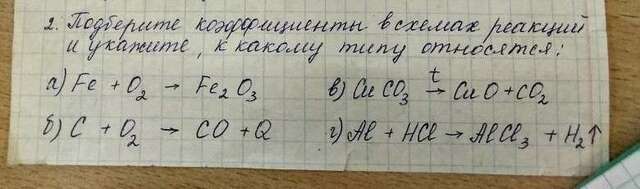 2. Подберите коэффициенты в схемах реакций
и укажите, к какому типу относятся:
а) Fe + O₂ → Fe₂O₃ в) CuCO₃ t→ CuO + CO₂
б) C + O₂ → CO + Q г) Al + HCl → AlCl₃ + H₂↑